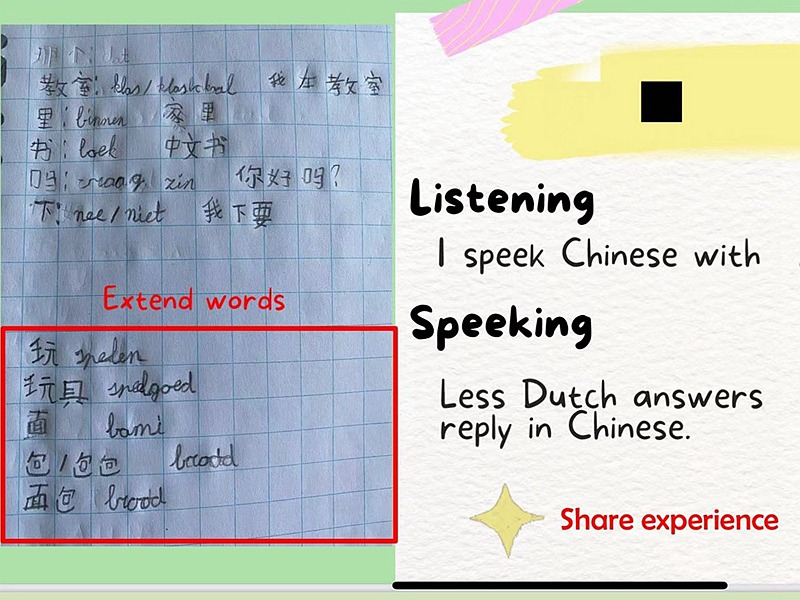 那个: dat
教室: klas/klaslokaal 我在教室
里: binnen 家里
书: boek 中文书
吗: vraag zin 你好吗?
下: nee/niet 我下要
Extend words
玩 spelen
玩具 speelgoed
面 bami
包/包包
面包 brood
Listening
I speek Chinese with
Speeking
Less Dutch answers
reply in Chinese.
Share experience